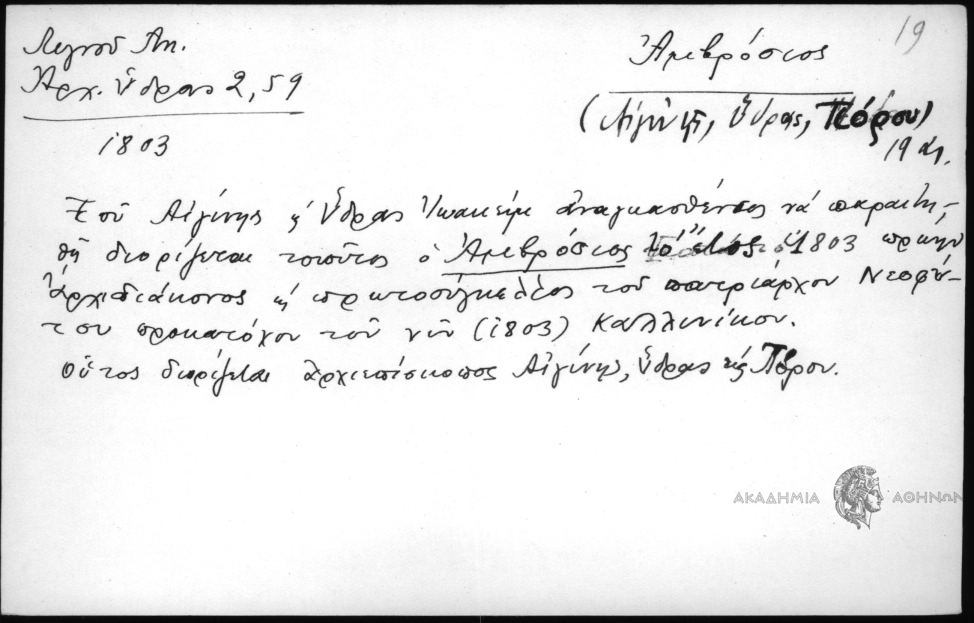 Λιγνοῦ Αντ.
Ἀρχ. Ὕδρας 2, 59
1803
19
Ἀμβρόσιος
(Αἰγίνης, Ὕδρας, Πόρου)
19 αἰ.
Τοῦ Αἰγίνης κ Ὕδρας Ἰωακεὶμ ἀναγκασθέντος νὰ παραιτη-
θῆ διορίζεται τοιοῦτος ὁ Ἀμβρόσιος τὸ ἔτος 1803 πρώην
ἀρχιδιάκονος κ πρωτοσύγκελλος τοῦ πατριάρχου Νεοφύ-
του προκατόχου τοῦ νῦν (1803) Καλλινίκου.
Οὗτος διορίζεται ἀρχιεπίσκοπος Αἰγίνης, Ὕδρας κ Πόρου.
ΑΚΑΔΗΜΙΑ ΑΘΗΝΩΝ